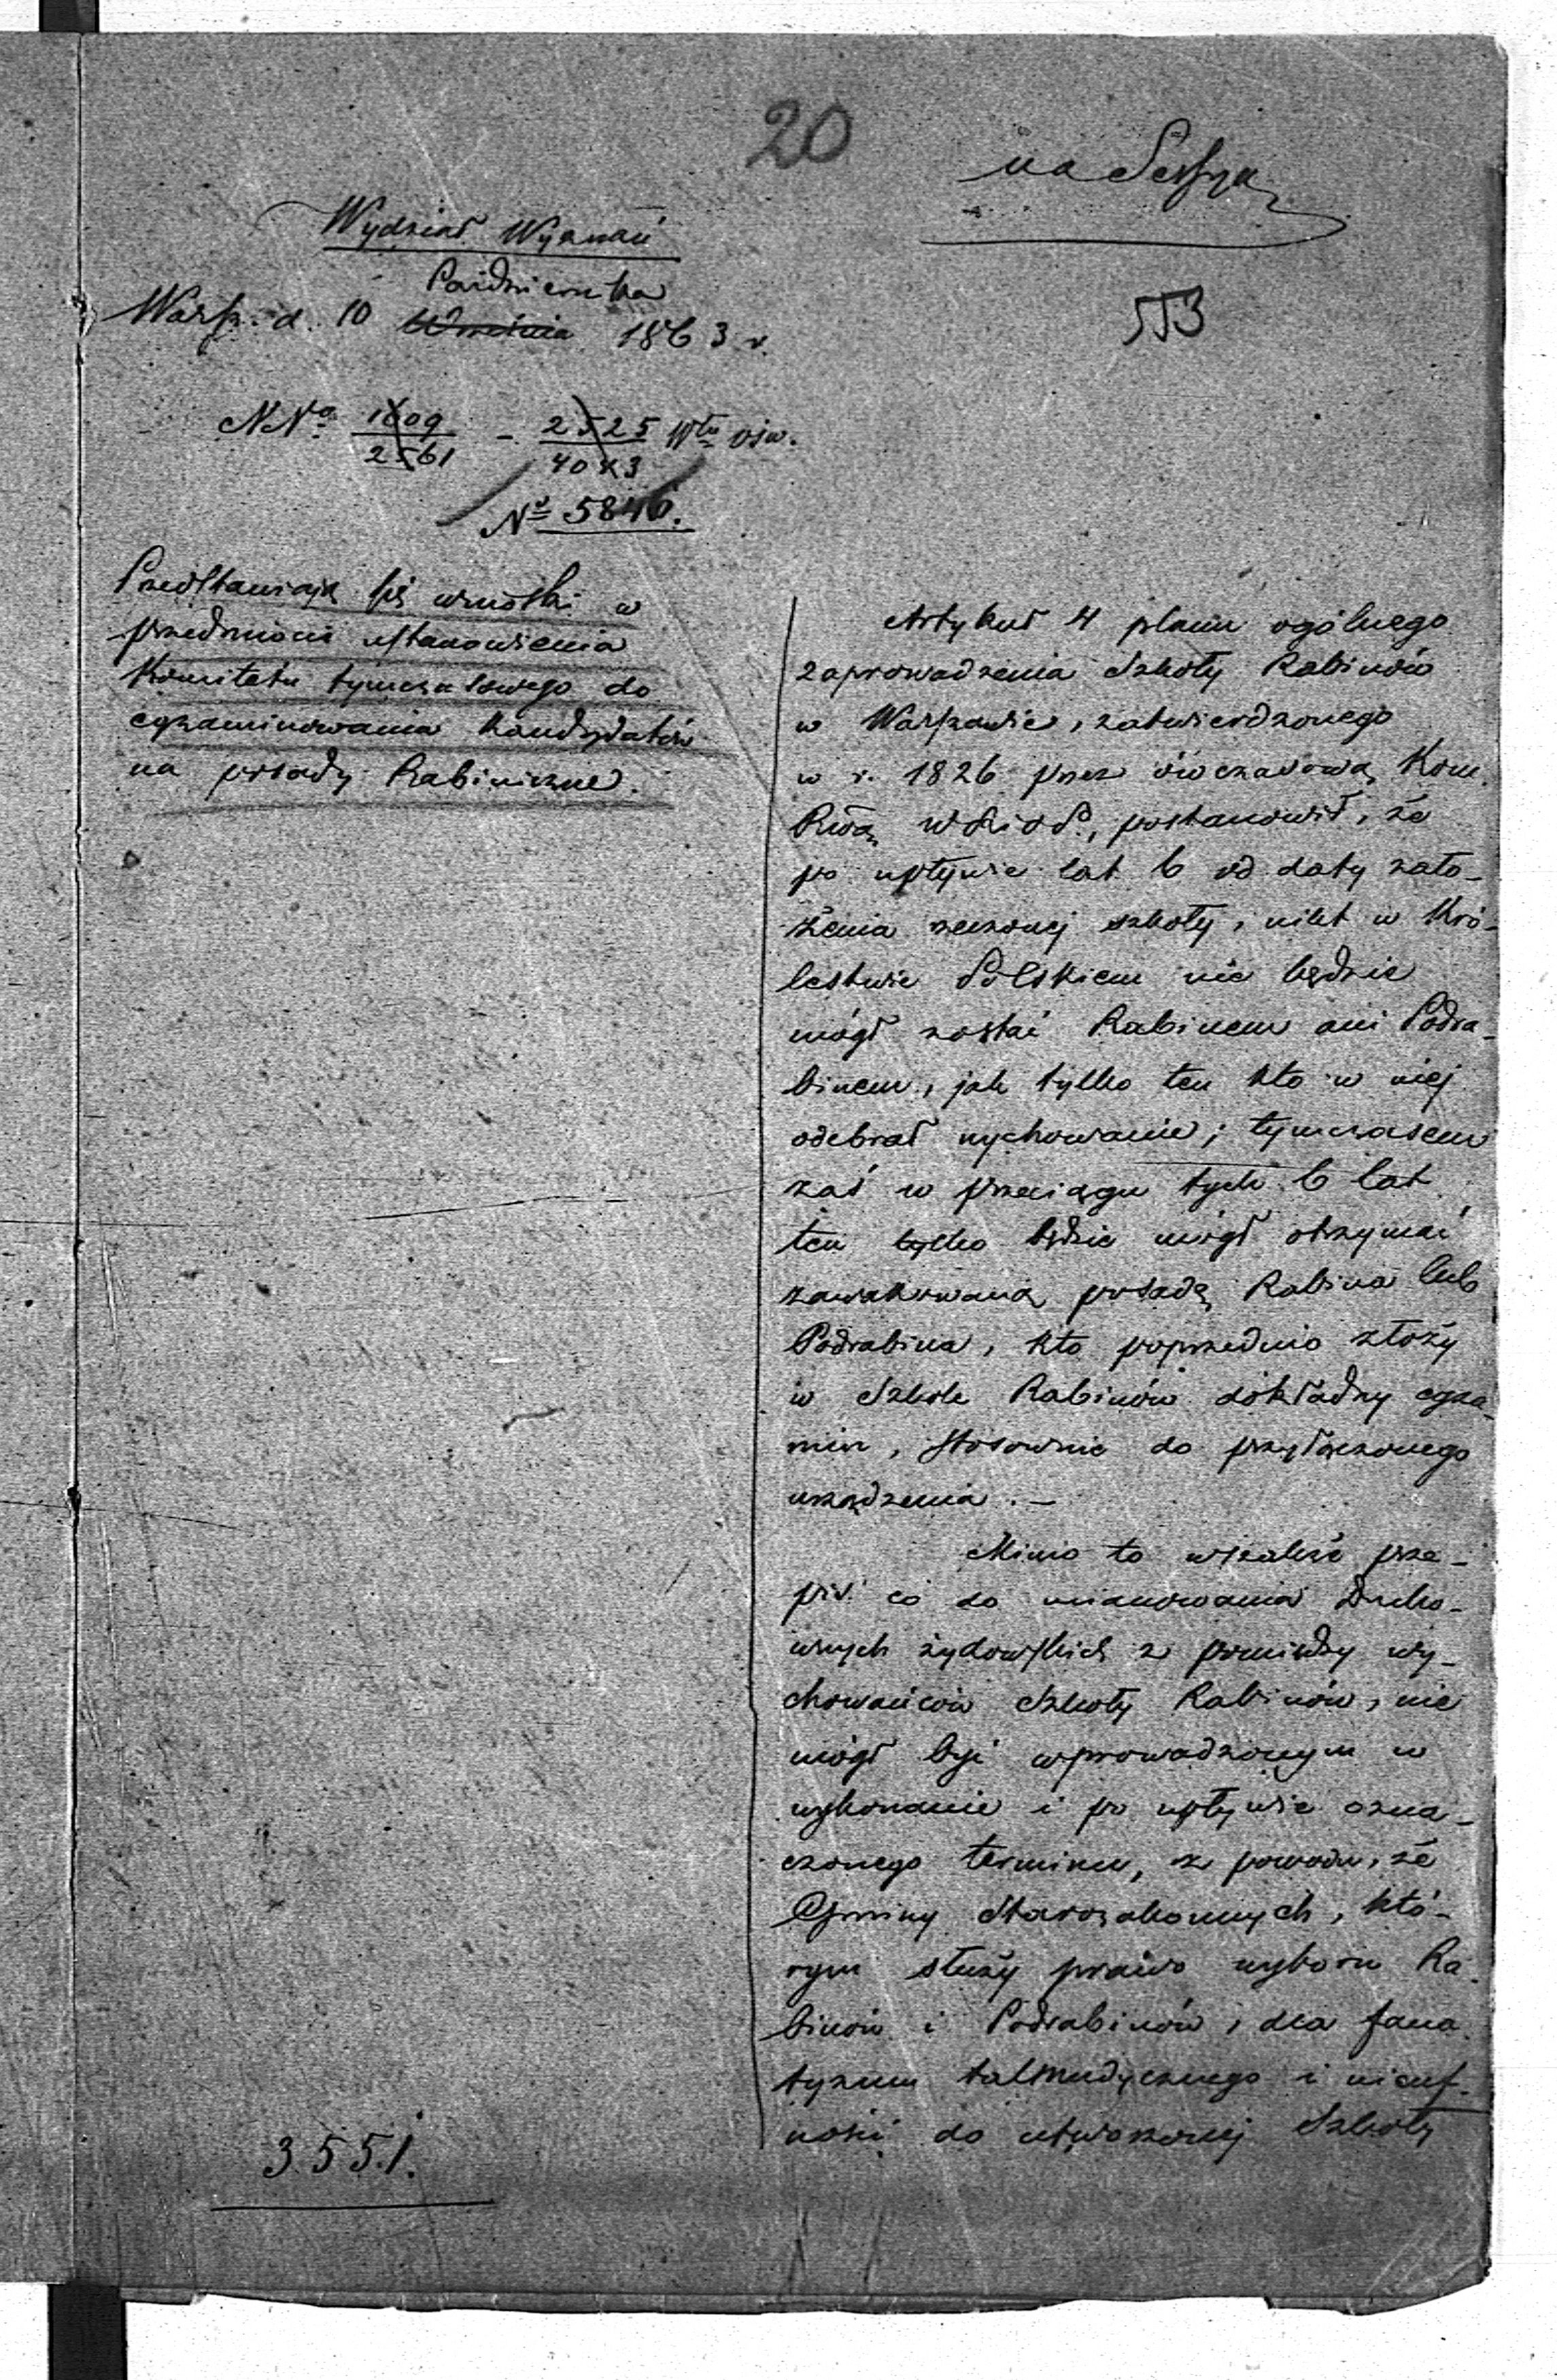 20
na Sessyą
Wydział Wyznań
Października
Warsz. d. 10 Września 1863 r.
553
NNo 1609/2561 - 2525/4043 Włu ośw.
No 5846.
Przedstawiają się wnioski w
przedmiocie ustanowienia
Komitetu tymczasowego do
egzaminowania Kandydatów
na posady Rabiniczne.
Artykuł 4 planu ogólnego
zaprowadzenia Szkoły Rabinów
w Warszawie, zatwierdzonego
w r. 1826 przez ówczasową Kom.
Rwą W R i O P., postanowił, że
po upływie lat 6 od daty zało-
żenia rzeczonej szkoły, nikt w Kró-
lestwie Polskiem nie będzie
mógł zostać Rabinem ani Podra-
binem, jak tylko ten kto w niej
odebrał wychowanie; tymczasem
zaś w przeciągu tych 6 lat
ten tylko będzie mógł otrzymać
zawakowaną posadę Rabina lub
Podrabina, kto poprzednio złoży
w Szkole Rabinów dokładny egza-
min, stosownie do przyłączonego
urządzenia. —
Mimo to wszakże prze-
pis co do mianowania Ducho-
wnych żydowskich z pomiędzy wy-
chowańców Szkoły Rabinów, nie
mógł być wprowadzonym w
wykonanie i po upływie ozna-
czonego terminu, z powodu, że
Gminy Starozakonnych, któ-
rym służy prawo wyboru Ra-
binów i Podrabinów, dla fana-
tyzmu talmudycznego i nieuf-
ności do utworzonej Szkoły
3551.